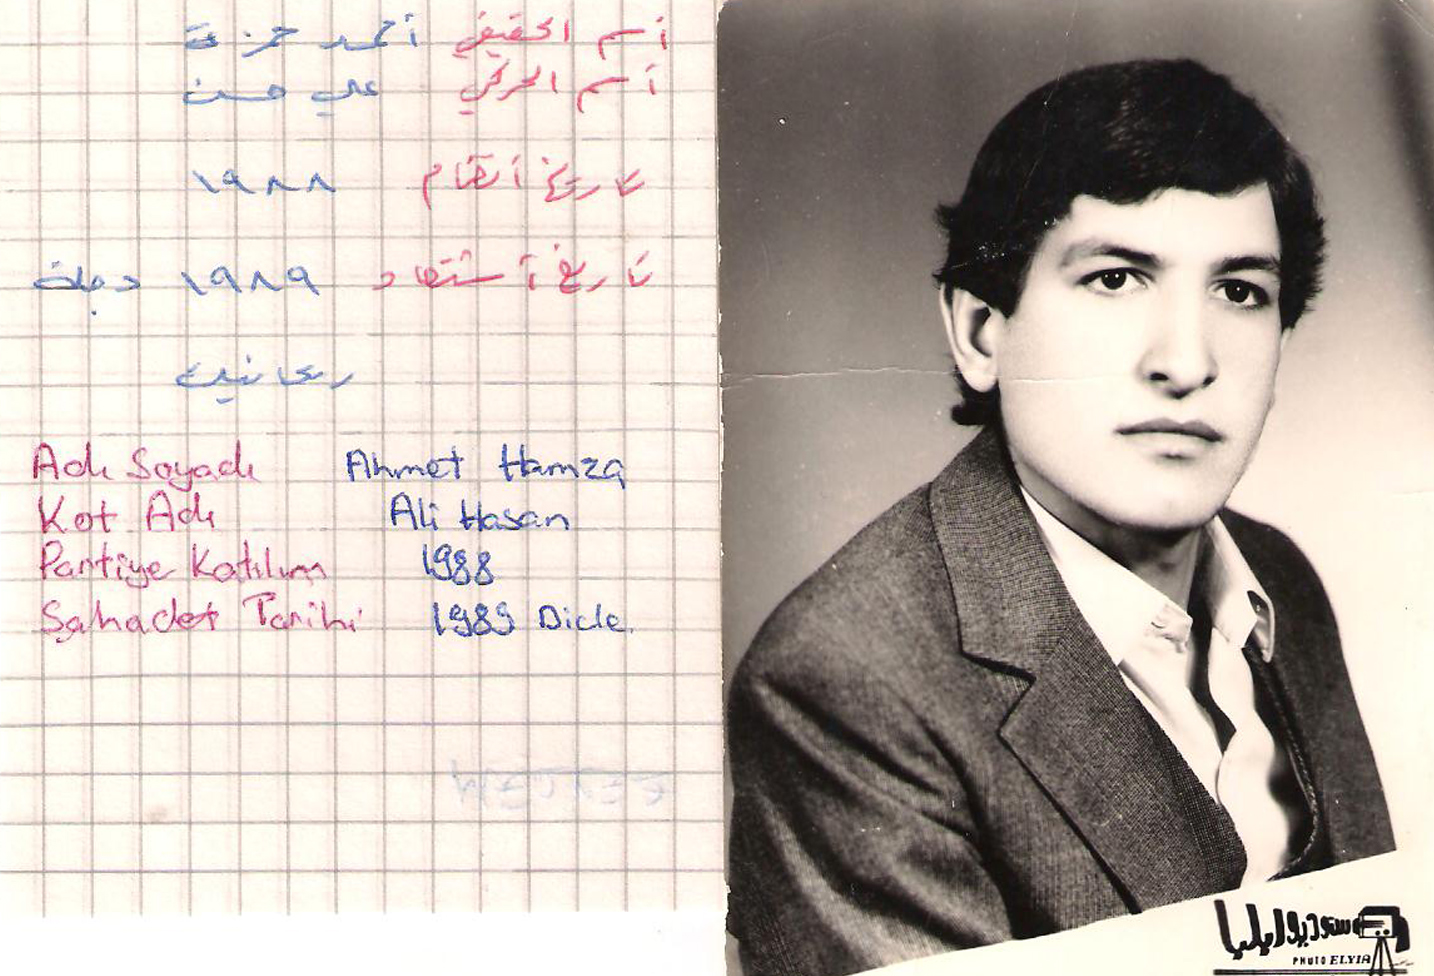 أسم الحقيقي أحمد حمزة
أسم الحركي علي حسن
تاريخ أنظمام ١٩٨٨
تاريخ أستشهاد ١٩٨٩ دجلة
Adı Soyadı Ahmet Hamza
Kot Adı Ali Hasan
Partiye Katılım 1988
Şahadet Tarihi 1989 Dicle
ستوديو ايليا
PHOTO ELYIA